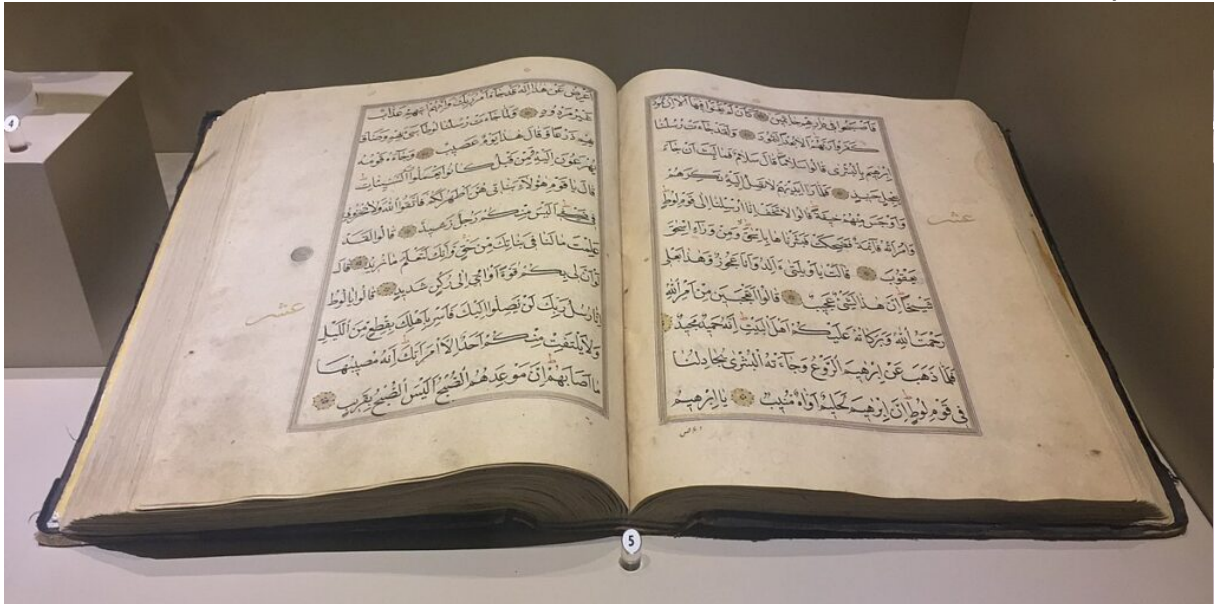 فَأَصْبَحُوا فِي دِيَارِهِمْ جَاثِمِينَ كَأَنْ لَمْ يَغْنَوْا فِيهَا أَلَا إِنَّ ثَمُودَ
كَفَرُوا رَبَّهُمْ أَلَا بُعْدًا لِثَمُودَ وَلَقَدْ جَاءَتْ رُسُلُنَا
إِبْرٰهِيمَ بِالْبُشْرَى قَالُوا سَلَامًا قَالَ سَلَامٌ فَمَا لَبِثَ أَنْ جَاءَ
بِعِجْلٍ حَنِيذٍ فَلَمَّا رَآ أَيْدِيَهُمْ لَا تَصِلُ إِلَيْهِ نَكِرَهُمْ
وَأَوْجَسَ مِنْهُمْ خِيفَةً قَالُوا لَا تَخَفْ إِنَّا أُرْسِلْنَا إِلَى قَوْمِ لُوطٍ
وَامْرَأَتُهُ قَائِمَةٌ فَضَحِكَتْ فَبَشَّرْنَاهَا بِإِسْحٰقَ وَمِنْ وَرَاءِ إِسْحٰقَ
يَعْقُوبَ قَالَتْ يَا وَيْلَتَى ءَأَلِدُ وَأَنَا عَجُوزٌ وَهٰذَا بَعْلِي
شَيْخًا إِنَّ هٰذَا لَشَيْءٌ عَجِيبٌ قَالُوا أَتَعْجَبِينَ مِنْ أَمْرِ اللهِ
رَحْمَتُ اللهِ وَبَرَكَاتُهُ عَلَيْكُمْ أَهْلَ الْبَيْتِ إِنَّهُ حَمِيدٌ مَجِيدٌ
فَلَمَّا ذَهَبَ عَنْ إِبْرٰهِيمَ الرَّوْعُ وَجَاءَتْهُ الْبُشْرَى يُجَادِلُنَا
فِي قَوْمِ لُوطٍ إِنَّ إِبْرٰهِيمَ لَحَلِيمٌ أَوَّاهٌ مُنِيبٌ يَا إِبْرٰهِيمُ
عشر
أَعْرِضْ عَنْ هٰذَا إِنَّهُ قَدْ جَاءَ أَمْرُ رَبِّكَ وَإِنَّهُمْ آتِيهِمْ عَذَابٌ
غَيْرُ مَرْدُودٍ وَلَمَّا جَاءَتْ رُسُلُنَا لُوطًا سِيءَ بِهِمْ وَضَاقَ
بِهِمْ ذَرْعًا وَقَالَ هٰذَا يَوْمٌ عَصِيبٌ وَجَاءَهُ قَوْمُهُ
يُهْرَعُونَ إِلَيْهِ وَمِنْ قَبْلُ كَانُوا يَعْمَلُونَ السَّيِّئَاتِ
قَالَ يَا قَوْمِ هٰؤُلَاءِ بَنَاتِي هُنَّ أَطْهَرُ لَكُمْ فَاتَّقُوا اللهَ وَلَا تُخْزُونِ
فِي ضَيْفِي أَلَيْسَ مِنْكُمْ رَجُلٌ رَشِيدٌ قَالُوا لَقَدْ
عَلِمْتَ مَا لَنَا فِي بَنَاتِكَ مِنْ حَقٍّ وَإِنَّكَ لَتَعْلَمُ مَا نُرِيدُ قَالَ
لَوْ أَنَّ لِي بِكُمْ قُوَّةً أَوْ آوِي إِلَى رُكْنٍ شَدِيدٍ قَالُوا يَا لُوطُ
إِنَّا رُسُلُ رَبِّكَ لَنْ يَصِلُوا إِلَيْكَ فَأَسْرِ بِأَهْلِكَ بِقِطْعٍ مِنَ اللَّيْلِ
وَلَا يَلْتَفِتْ مِنْكُمْ أَحَدٌ إِلَّا امْرَأَتَكَ إِنَّهُ مُصِيبُهَا
مَا أَصَابَهُمْ إِنَّ مَوْعِدَهُمُ الصُّبْحُ أَلَيْسَ الصُّبْحُ بِقَرِيبٍ
عشر
4
5